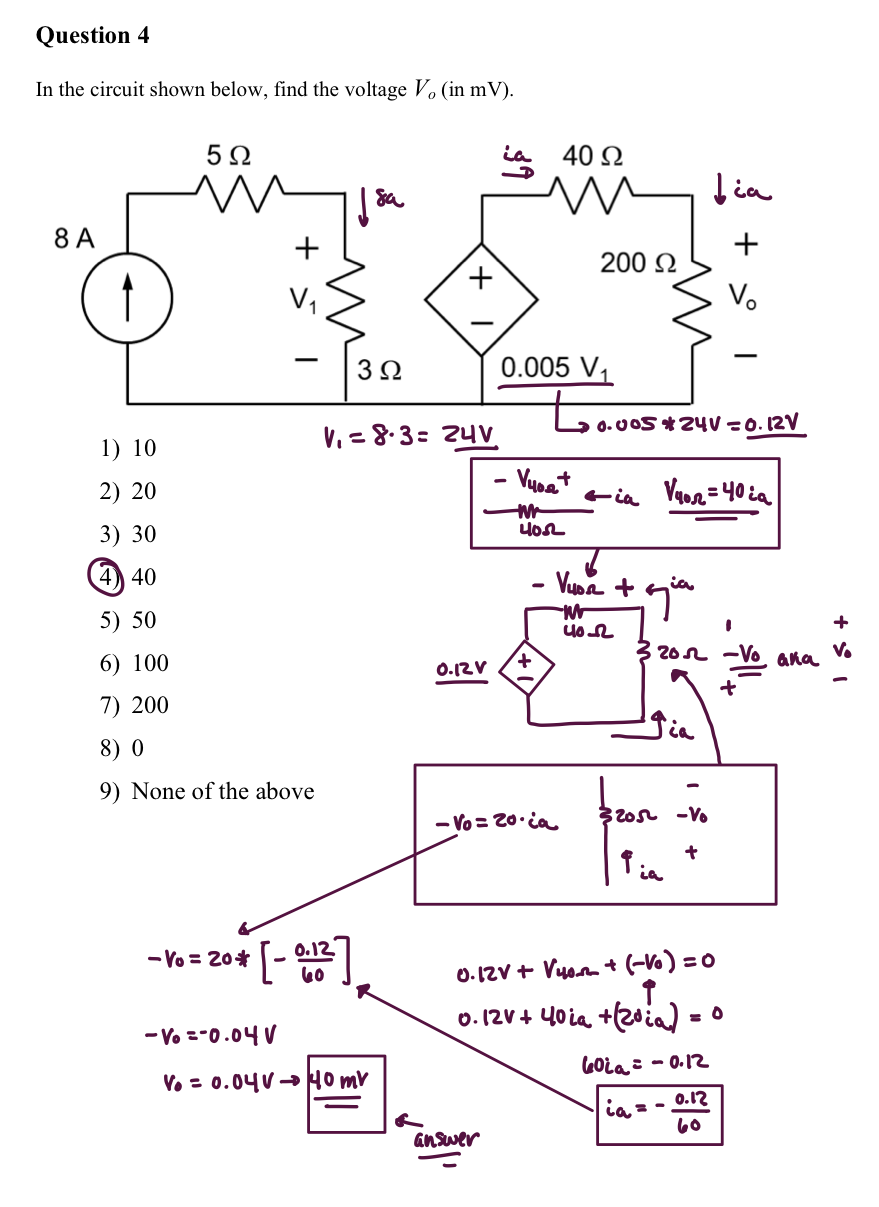 Question 4
In the circuit shown below, find the voltage Vₒ (in mV).
5 Ω
ia
40 Ω
8a
ia
8 A
+
V₁
−
3 Ω
+
−
0.005 V₁
200 Ω
+
Vₒ
−
V₁ = 8·3 = 24V
0.005 * 24V = 0.12V
1) 10
2) 20
3) 30
4) 40
5) 50
6) 100
7) 200
8) 0
9) None of the above
− V40Ω +
← ia
V40Ω = 40 ia
40Ω
− V40Ω +
ia
40 Ω
0.12V
+
−
20 Ω
−
−Vo
+
aka
+
Vo
−
ia
−Vo = 20·ia
20Ω
−
−Vo
+
ia
−Vo = 20 * [− 0.12/60]
−Vo = −0.04 V
Vo = 0.04V → 40 mV
answer
0.12V + V40Ω + (−Vo) = 0
0.12V + 40ia + (20ia) = 0
60ia = − 0.12
ia = − 0.12/60